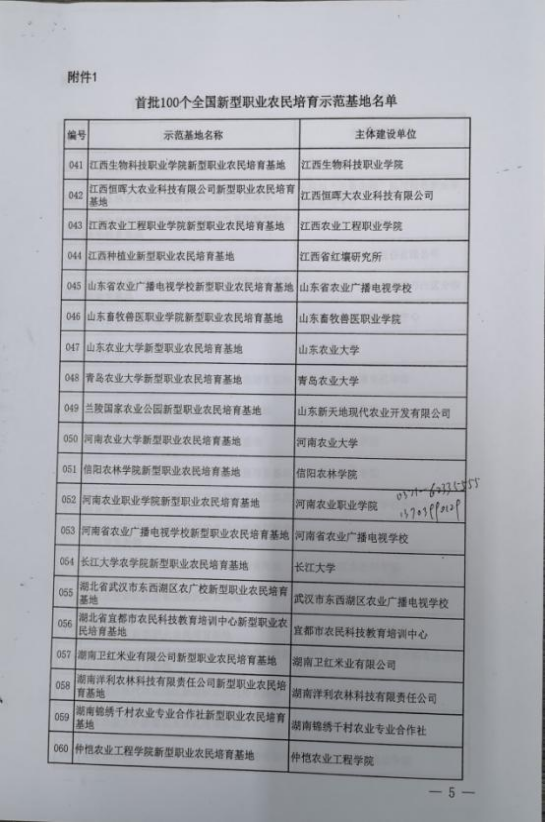 附件1
首批100个全国新型职业农民培育示范基地名单
编号 示范基地名称 主体建设单位
041 江西生物科技职业学院新型职业农民培育基地 江西生物科技职业学院
042 江西恒晖大农业科技有限公司新型职业农民培育 江西恒晖大农业科技有限公司
基地
043 江西农业工程职业学院新型职业农民培育基地 江西农业工程职业学院
044 江西种植业新型职业农民培育基地 江西省红壤研究所
045 山东省农业广播电视学校新型职业农民培育基地 山东省农业广播电视学校
046 山东畜牧兽医职业学院新型职业农民培育基地 山东畜牧兽医职业学院
047 山东农业大学新型职业农民培育基地 山东农业大学
048 青岛农业大学新型职业农民培育基地 青岛农业大学
049 兰陵国家农业公园新型职业农民培育基地 山东新天地现代农业开发有限公司
050 河南农业大学新型职业农民培育基地 河南农业大学
051 信阳农林学院新型职业农民培育基地 信阳农林学院
052 河南农业职业学院新型职业农民培育基地 河南农业职业学院
053 河南省农业广播电视学校新型职业农民培育基地 河南省农业广播电视学校
054 长江大学农学院新型职业农民培育基地 长江大学
055 湖北省武汉市东西湖区农广校新型职业农民培育 武汉市东西湖区农业广播电视学校
基地
056 湖北省宜都市农民科技教育培训中心新型职业农 宜都市农民科技教育培训中心
民培育基地
057 湖南卫红米业有限公司新型职业农民培育基地 湖南卫红米业有限公司
058 湖南洋利农林科技有限责任公司新型职业农民培 湖南洋利农林科技有限责任公司
育基地
059 湖南锦绣千村农业专业合作社新型职业农民培育 湖南锦绣千村农业专业合作社
基地
060 仲恺农业工程学院新型职业农民培育基地 仲恺农业工程学院
— 5 —